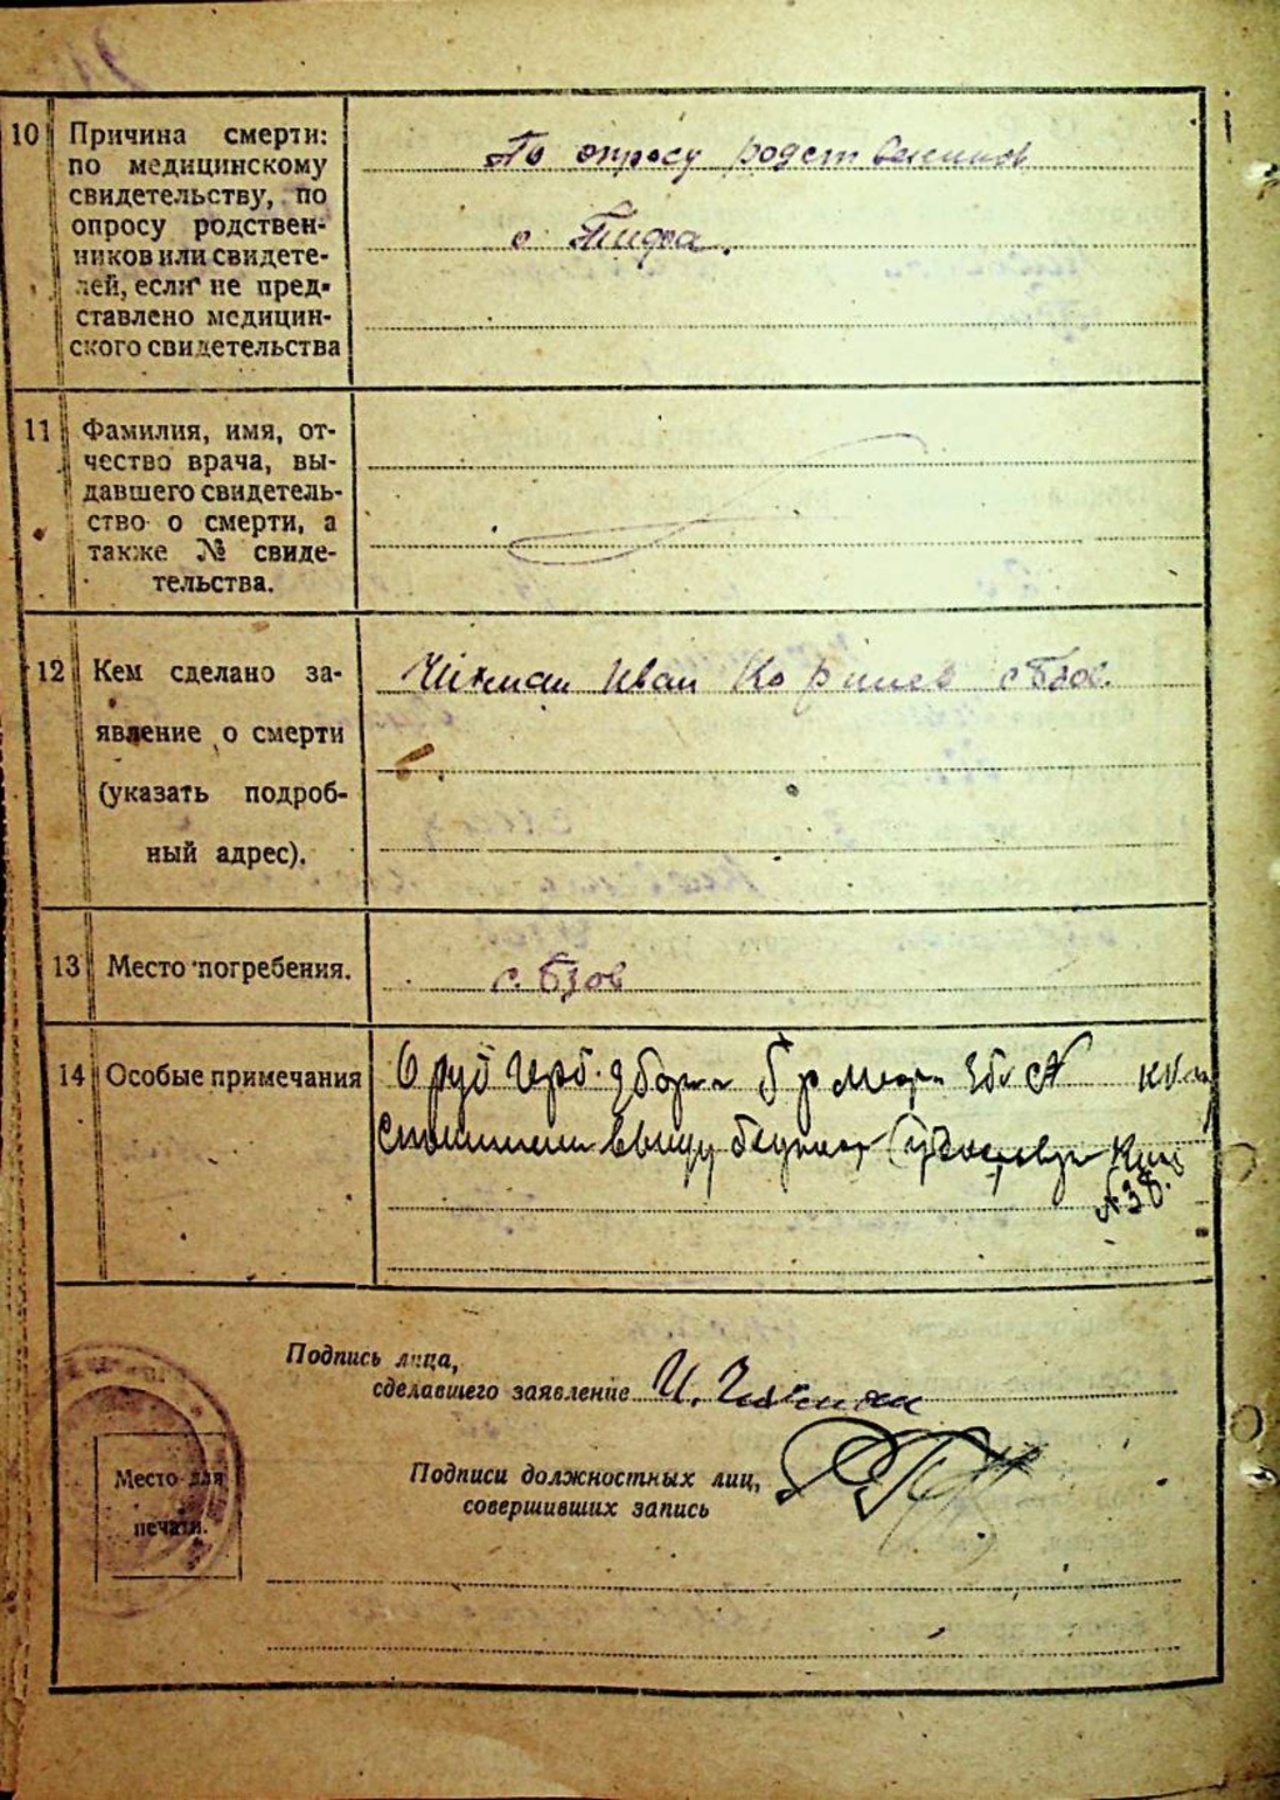 10 Причина смерти:
по медицинскому
свидетельству, по
опросу родствен-
ников или свидете-
лей, если не пред-
ставлено медицин-
ского свидетельства
По опросу родственников
с Тифа.
11 Фамилия, имя, от-
чество врача, вы-
давшего свидетель-
ство о смерти, а
также № свиде-
тельства.
12 Кем сделано за-
явление о смерти
(указать подроб-
ный адрес).
Иван с Бзов
13 Место погребения.
с. Бзов
14 Особые примечания
6 руб
№ 38.
Подпись лица,
сделавшего заявление И.
Подписи должностных лиц,
совершивших запись
Место для
печати.